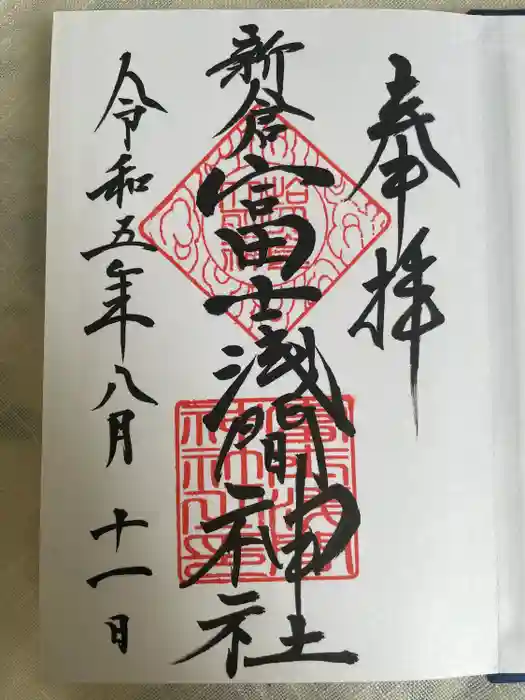 奉拝
新倉富士浅間神社
令和五年八月十一日